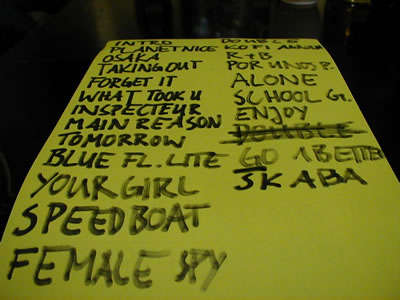 INTRO
PLANET NICE
OSAKA
TAKING OUT
FORGET IT
WHAT TOOK U
INSPECTEUR
MAIN REASON
TOMORROW
BLUE FL. LITE
YOUR GIRL
SPEEDBOAT
FEMALE SPY
DOUBLE
KOFI ANNAN
R+B
POR UNOS P.
ALONE
SCHOOL G.
ENJOY
DOUBLE
GO 1 BETTER
SKABA